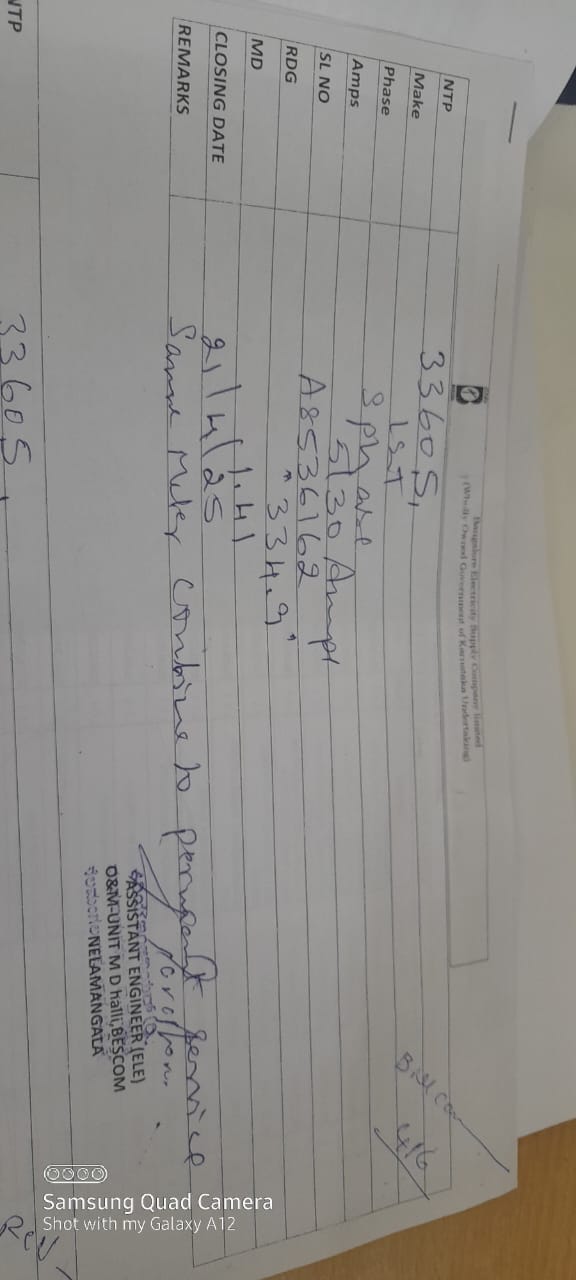 Bangalore Electricity Supply Company limited
(Wholly Owned Government of Karnataka Undertaking)
NTP 33605,
Make L&T
Phase 3 phase
Amps 5/30 Amps
SL NO A8536162
RDG "334.9"
MD 1.41
CLOSING DATE 21/4/25
REMARKS Same Meter Combine to permanent service
ASSISTANT ENGINEER (ELE)
O&M-UNIT M D halli, BESCOM
NELAMANGALA
NTP 33605,
Samsung Quad Camera
Shot with my Galaxy A12